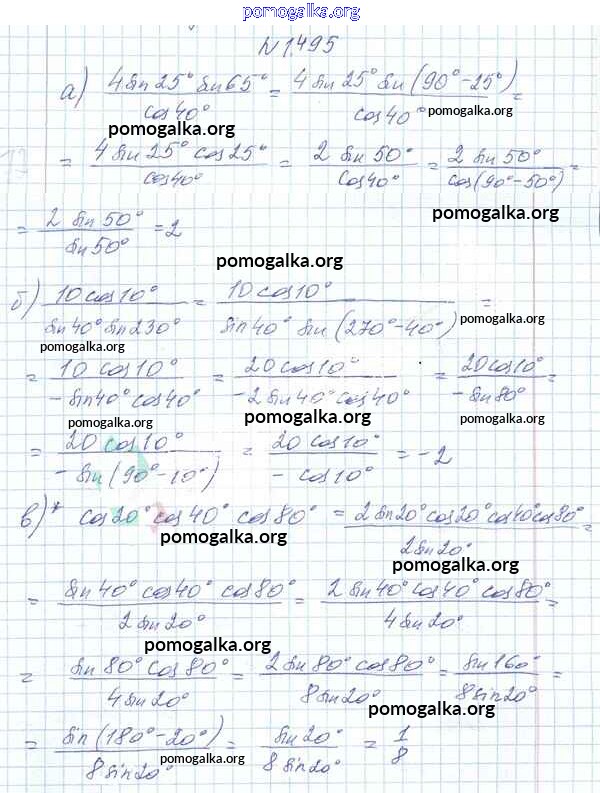 pomogalka.org
N 1.495
а) 4 sin 25° sin 65° / cos 40° = 4 sin 25° sin (90° - 25°) / cos 40° =
pomogalka.org
pomogalka.org
= 4 sin 25° cos 25° / cos 40° = 2 sin 50° / cos 40° = 2 sin 50° / cos (90° - 50°) =
pomogalka.org
= 2 sin 50° / sin 50° = 2
pomogalka.org
б) 10 cos 10° / sin 40° sin 230° = 10 cos 10° / sin 40° sin (270° - 40°) =
pomogalka.org
pomogalka.org
= 10 cos 10° / - sin 40° cos 40° = 20 cos 10° / - 2 sin 40° cos 40° = 20 cos 10° / - sin 80° =
pomogalka.org
pomogalka.org
pomogalka.org
= 20 cos 10° / - sin (90° - 10°) = 20 cos 10° / - cos 10° = - 2
pomogalka.org
в)* cos 20° cos 40° cos 80° = 2 sin 20° cos 20° cos 40° cos 80° / 2 sin 20° =
pomogalka.org
pomogalka.org
= sin 40° cos 40° cos 80° / 2 sin 20° = 2 sin 40° cos 40° cos 80° / 4 sin 20° =
pomogalka.org
= sin 80° cos 80° / 4 sin 20° = 2 sin 80° cos 80° / 8 sin 20° = sin 160° / 8 sin 20° =
pomogalka.org
= sin (180° - 20°) / 8 sin 20° = sin 20° / 8 sin 20° = 1/8
pomogalka.org